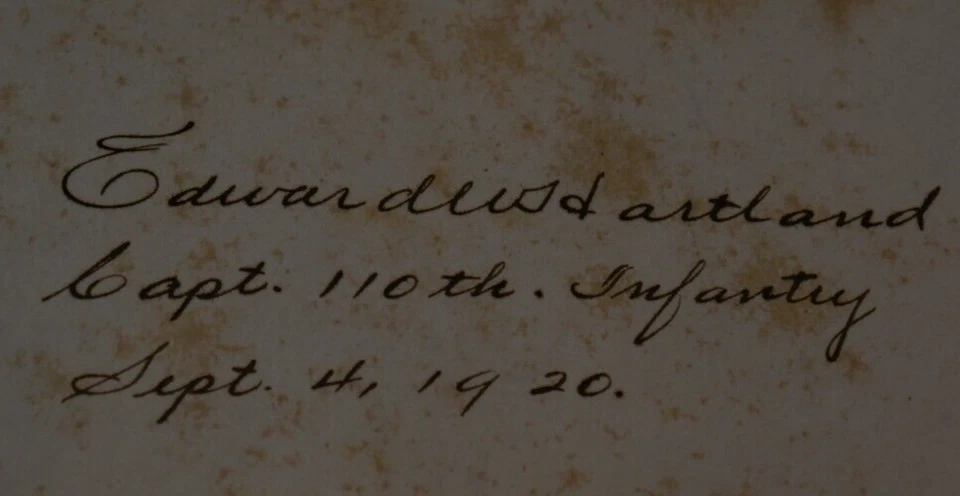 Edward W Hartland
Capt. 110th. Infantry
Sept. 4, 1920.